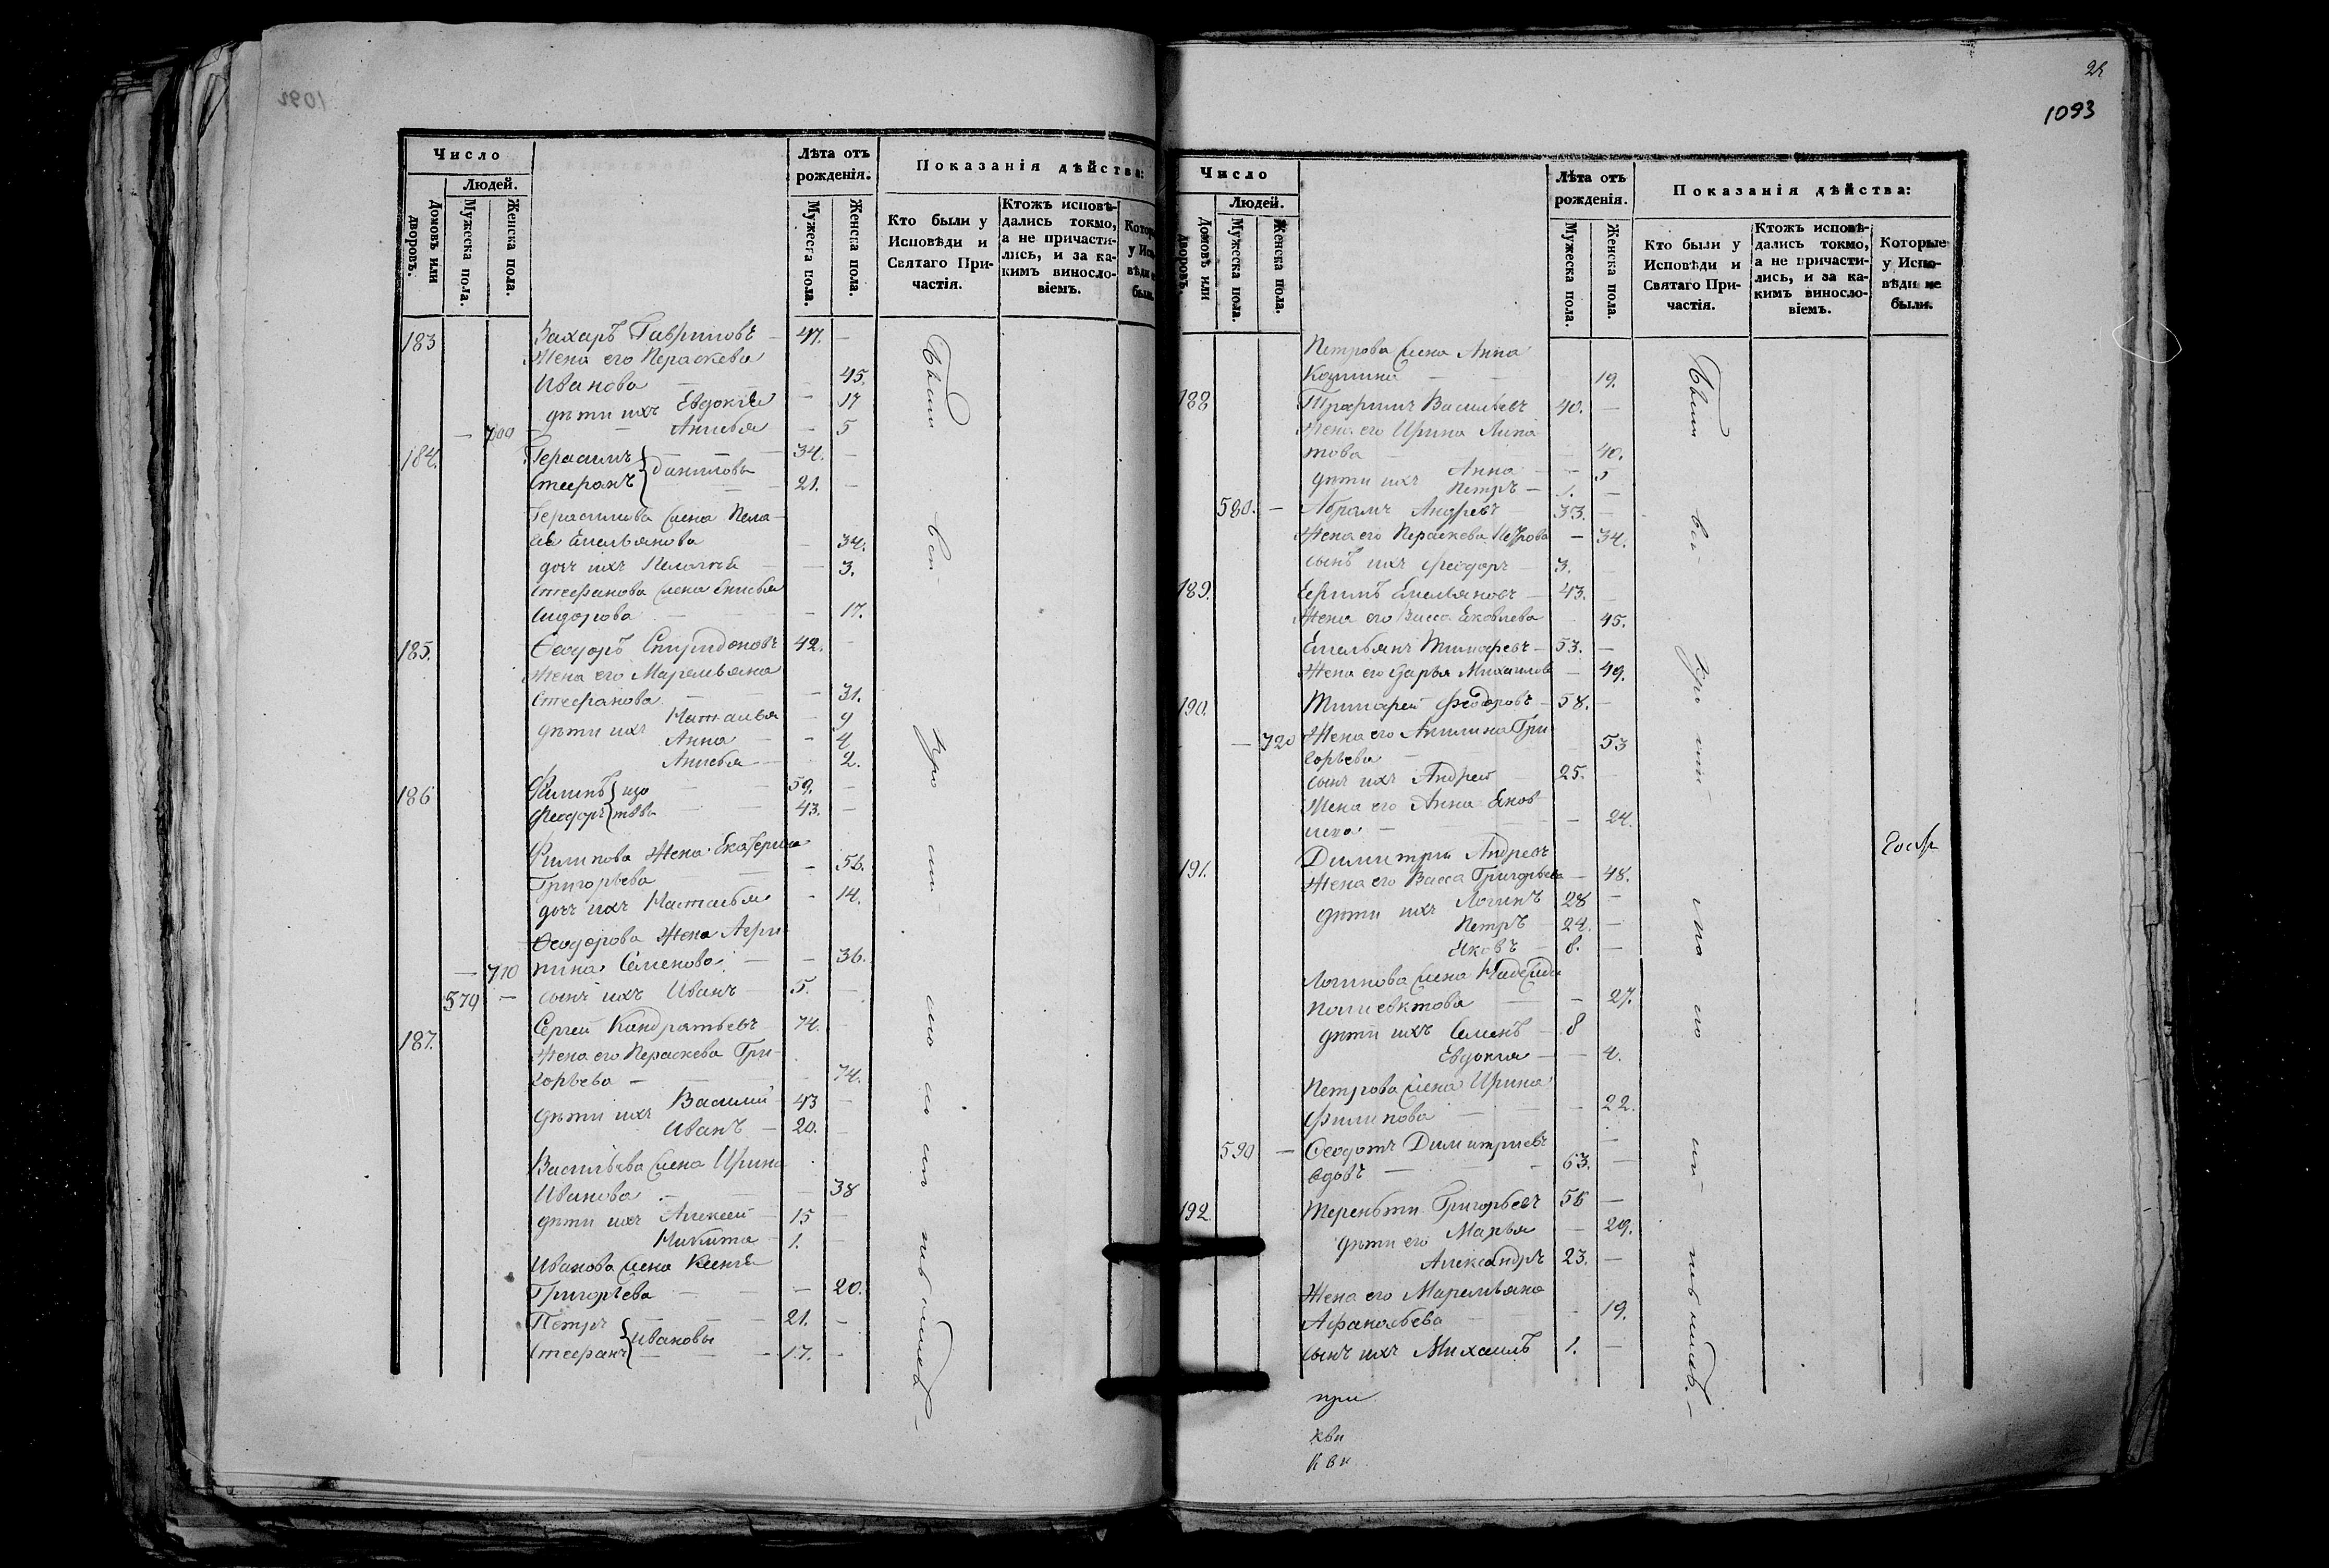 1092
Число
Людей.
Домовъ или дворовъ.
Мужеска пола.
Женска пола.
Лѣта отъ рожденія.
Мужеска пола.
Женска пола.
Показанія дѣйства:
Кто были у Исповѣди и Святаго Причастія.
Ктожъ исповѣдались токмо, а не причастились, и за какимъ винословіемъ.
183 Захаръ Гавриловъ 47. —
Жена его Параскева
Иванова — 45.
дѣти ихъ Евдокія — 17
— 700 Анисья — 5
184. Герасимъ 34. —
Стефанъ } Даниловы 21. —
Герасимова жена Пела-
гея Емельянова — 34.
дочь ихъ Пелагея — 3.
Стефанова жена
Сидорова — 17.
185. Ѳеодоръ Спиридоновъ 42. —
Жена его Маремьяна
Стефанова — 31.
дѣти ихъ Наталья — 9
Анна — 4
Анисья — 2.
186 Филипъ 59. —
Феодоръ 43. —
Филипова жена Екатерина
Григорьева — 56.
дочь ихъ Настасья — 14.
Ѳеодорова жена Агри-
— 710 пина Семенова — 36.
579 — сынъ ихъ Иванъ 5. —
187. Сергей Кондратьевъ 74. —
Жена его Параскева Гри-
горьева — 74.
дѣти ихъ Василий 43 —
Иванъ — 20. —
Васильева жена Ирина
Иванова — 38
дѣти ихъ Алексей 15 —
Никита 1. —
Иванова жена Ксенія
Григорьева — 20.
Петръ 21. —
Стефанъ } Ивановы — 17. —
Были
всѣ
1093
Число
Людей.
Домовъ или дворовъ.
Мужеска пола.
Женска пола.
Лѣта отъ рожденія.
Мужеска пола.
Женска пола.
Показанія дѣйства:
Кто были у Исповѣди и Святаго Причастія.
Ктожъ исповѣдались токмо, а не причастились, и за какимъ винословіемъ.
Которые у Исповѣди не были.
Петрова жена Анна
Козмина — 19.
188 Трофимъ Васильевъ 40. —
Жена его Ирина Липа
това — 40.
дѣти ихъ Анна — 5
Петръ — 1. —
580. — Абрамъ Андревъ 33. —
Жена его Параскева Петрова — 34.
сынъ ихъ Феодоръ 3. —
189. Ефимъ Емельяновъ — 43. —
Жена его Васса Яковлева 45.
Емельянъ Тимофевъ — 53. —
Жена его Дарья Михайлова — 49.
190. Тимофей Федоровъ — 58. —
— 720 Жена его Акилина Гри-
горьева — 53
сынъ ихъ Андрей 25. —
Жена его Анна Яков
лева — 24.
191. Димитрій Андревъ
Жена его Васса Григорьева — 48.
дѣти ихъ Логинъ 28 —
Петръ — 24. —
Яковъ — 8. —
Логинова жена Надежда
Полиевктова — 27.
дѣти ихъ Семенъ 8
Евдокия — 4.
Петрова жена Ирина
Филипова — 22.
590 — Ѳеодотъ Димитриевъ —
вдовъ — 63. —
192. Терентей Григорьевъ 56 —
дѣти его Марья — 29.
Александръ 23. —
Жена его Маремьяна
Афанасьева — 19.
сынъ ихъ Михаилъ 1. —
Были